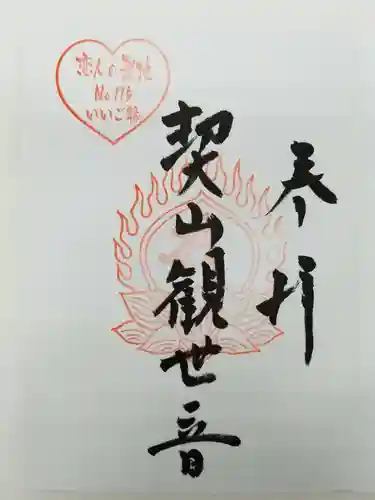 恋人の聖地
No.116
いいご縁
奉拝
契山観世音